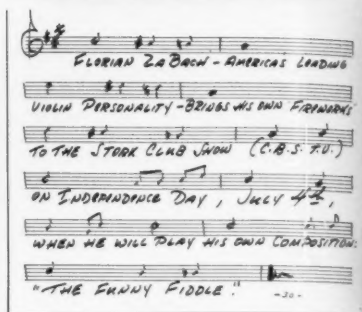 FLORIAN ZABACH - AMERICAS LEADING
VIOLIN PERSONALITY - BRINGS HIS OWN FIREWORKS
TO THE STORK CLUB SHOW (C.B.S. T.V.)
ON INDEPENDENCE DAY, JULY 4th,
WHEN HE WILL PLAY HIS OWN COMPOSITION:
"THE FUNNY FIDDLE."
-30-